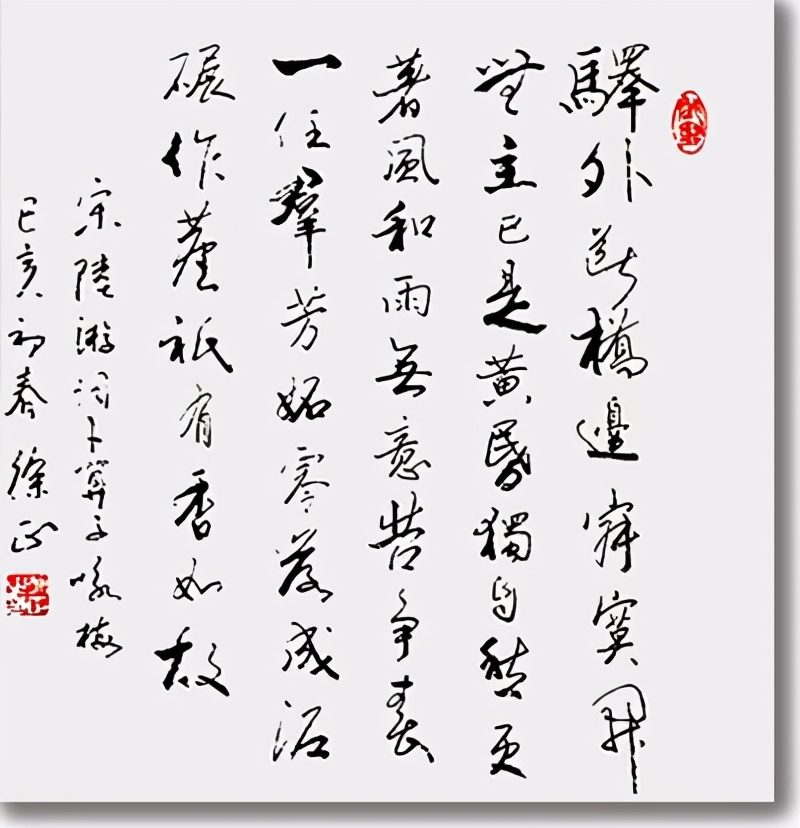 驛外斷橋邊寂寞開
無主已是黃昏獨自愁更
著風和雨無意苦爭春
一任群芳妬零落成泥
碾作塵祇有香如故
宋陸游詞卜算子咏梅
己亥初春徐正